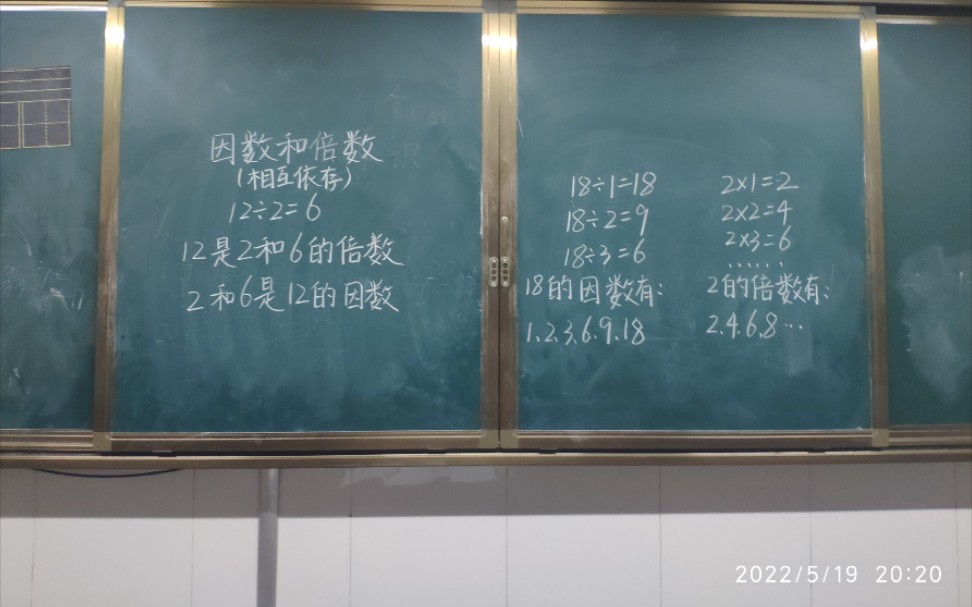 因数和倍数
(相互依存)
12÷2=6
12是2和6的倍数
2和6是12的因数
18÷1=18
18÷2=9
18÷3=6
18的因数有:
1、2、3、6、9、18
2×1=2
2×2=4
2×3=6
……
2的倍数有:
2、4、6、8…
2022/5/19 20:20